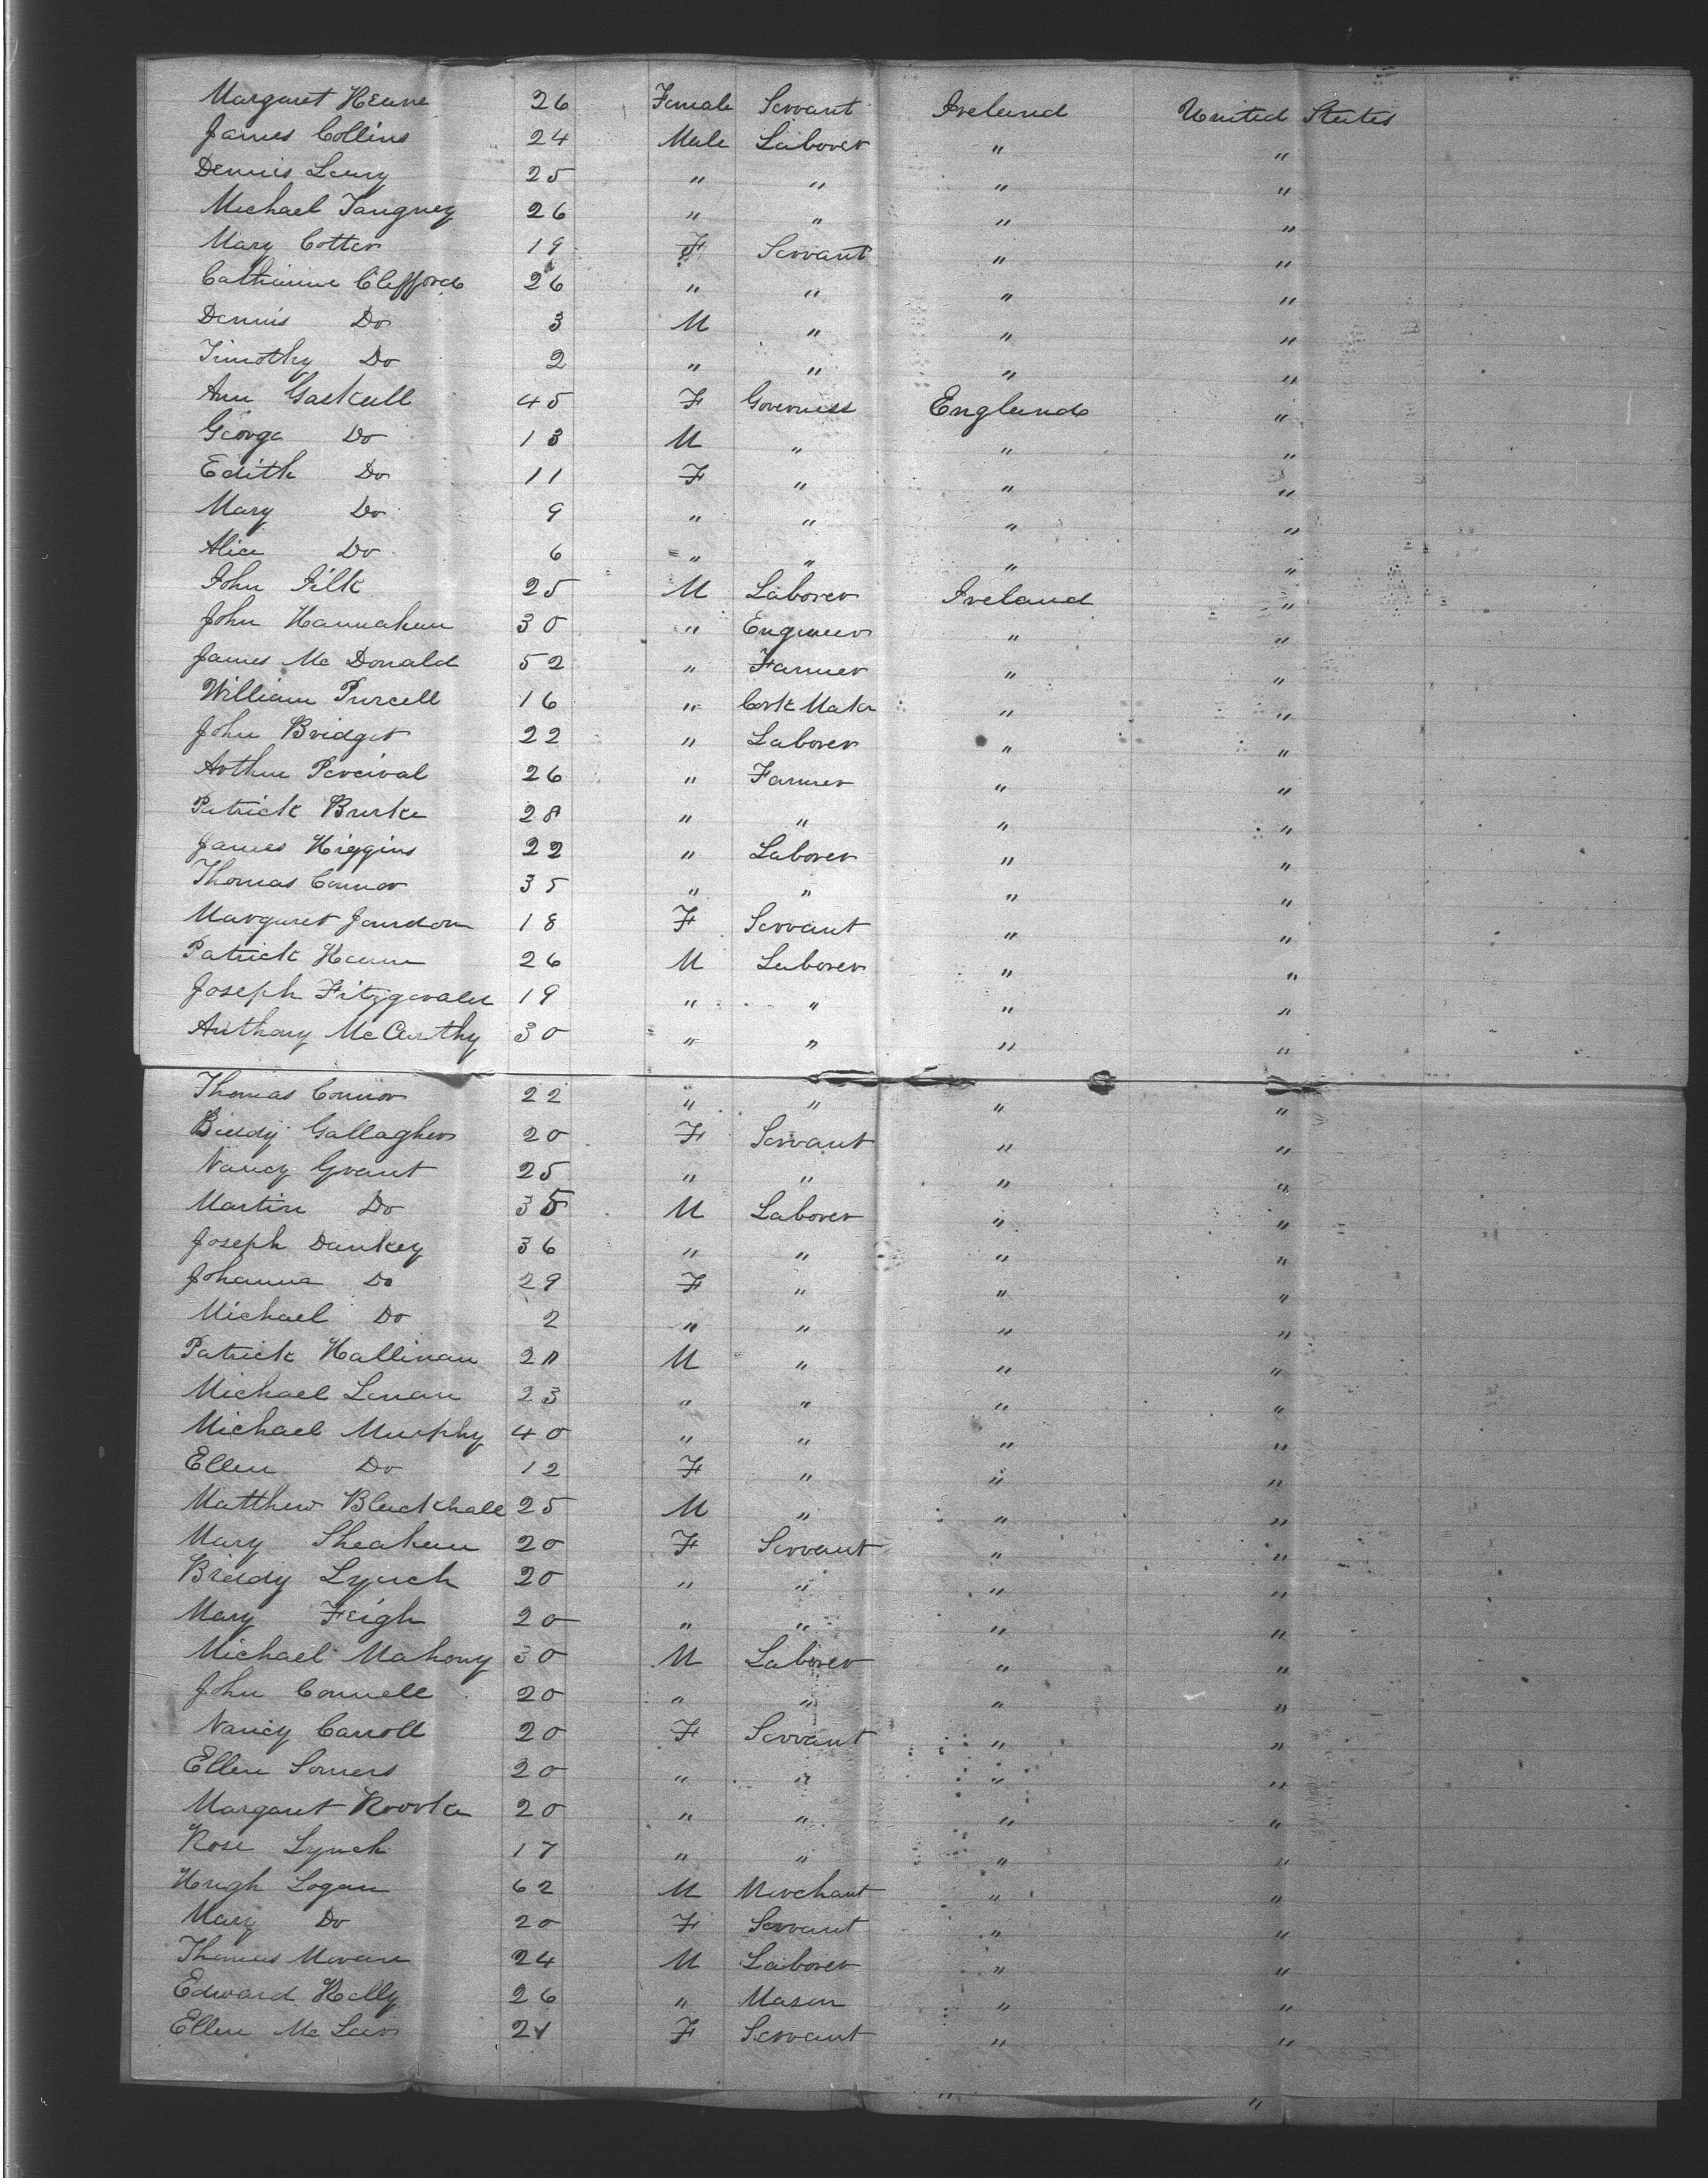 Margaret Heane 26 Female Servant Ireland United States
James Collins 24 Male Laborer " "
Dennis Leary 25 " " " "
Michael Tangney 26 " " " "
Mary Cotter 19 F Servant " "
Catharine Clifford 26 " " " "
Dennis Do 3 M " " "
Timothy Do 2 " " " "
Ann Gaskell 45 F Governess England "
George Do 13 M " " "
Edith Do 11 F " " "
Mary Do 9 " " " "
Alice Do 6 " " " "
John 25 M Laborer Ireland "
John Hannahan 30 " Engineer " "
James Mc Donald 52 " Farmer " "
William Purcell 16 " Cork Maker " "
John Bridget 22 " Laborer " "
Arthur Percival 26 " Farmer " "
Patrick Burke 28 " " " "
James Higgins 22 " Laborer " "
Thomas Connor 35 " " " "
Margaret 18 F Servant " "
Patrick 26 M Laborer " "
Joseph Fitzgerald 19 " " " "
Anthony McCarthy 30 " " " "
Thomas Connor 22 " " " "
Biddy Gallagher 20 F Servant " "
Nancy Grant 25 " " " "
Martin Do 35 M Laborer " "
Joseph Dankey 36 " " " "
Johanna Do 29 F " " "
Michael Do 2 " " " "
Patrick Hallinan M " " "
Michael Lenan 23 " " " "
Michael Murphy 40 " " " "
Ellen Do 12 F " " "
Matthew Blackhall 25 M " " "
Mary Sheahan 20 F Servant " "
Briddy Lynch 20 " " " "
Mary Feigh 20 " " " "
Michael Mahony 30 M Laborer " "
John Connell 20 " " " "
Nancy Carroll 20 F Servant " "
Ellen Somers 20 " " " "
Margaret Roorke 20 " " " "
Rose Lynch 17 " " " "
Hugh Logan 62 M Merchant " "
Mary Do 20 F Servant " "
Thomas Moran 24 M Laborer " "
Edward Kelly 26 " Mason " "
Ellen Mc F Servant " "
" "